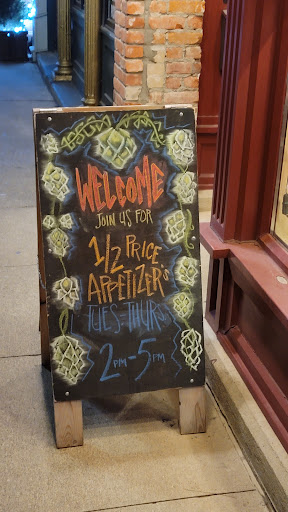 WELCOME
JOIN US FOR
1/2 PRICE
APPETIZER'S
TUES-THURS
2PM-5PM